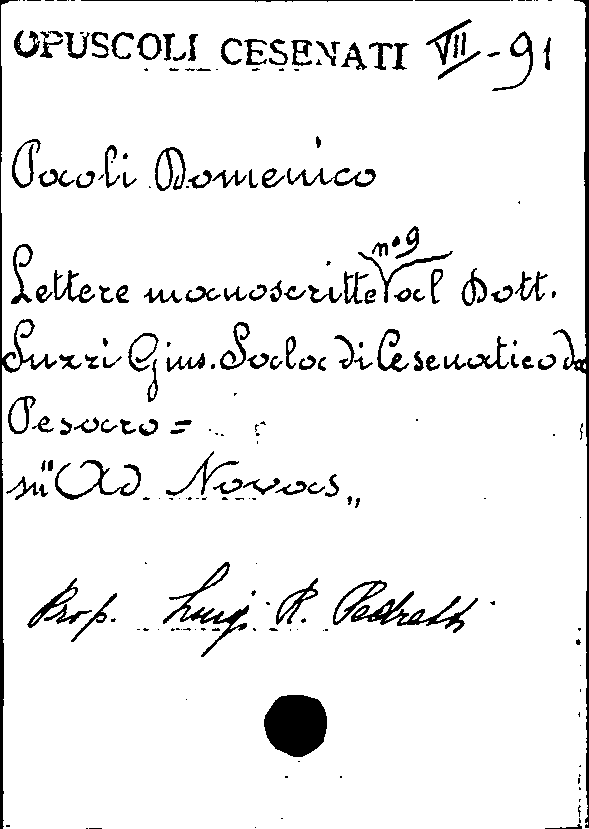 OPUSCOLI CESENATI VII-91
Paoli Domenico
n° 9
Lettere manoscritte al Dott.
Suzzi Gius. Sala di Cesenatico da
Pesaro =
su "Ad Novas„
Prop. Luigi R. Pedretti